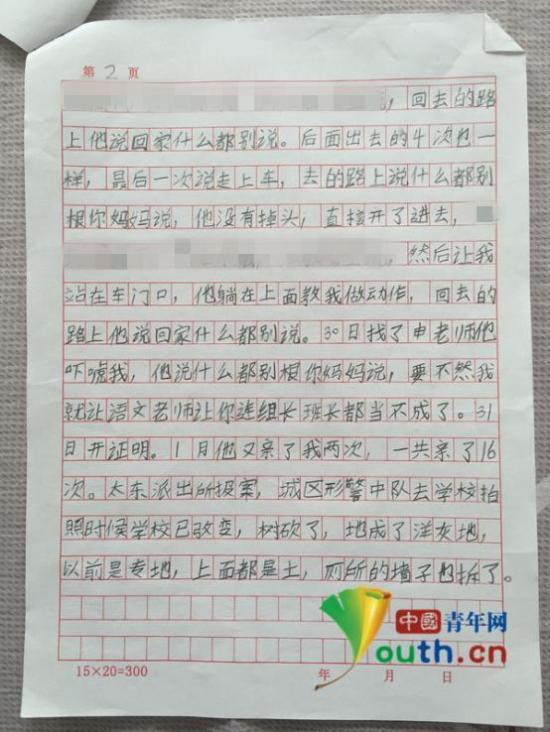 第2页
，回去的路
上他说回家什么都别说。后面出去的4次也一
样，最后一次说走上车，去的路上说什么都别
根你妈妈说，他没有掉头，直接开了进去，
，然后让我
站在车门口，他躺在上面教我做动作，回去的
路上他说回家什么都别说。30日找了申老师他
吓唬我，他说什么都别根你妈妈说，要不然我
就让语文老师让你连组长班长都当不成了。31
日开证明。1月他又亲了我两次，一共亲了16
次。太东派出所报案，城区形警中队去学校拍
照时候学校已改变，树砍了，地成了洋灰地，
以前是专地，上面都是土，厕所的墙子也拆了。
中國青年网
youth.cn
15×20=300 年 月 日